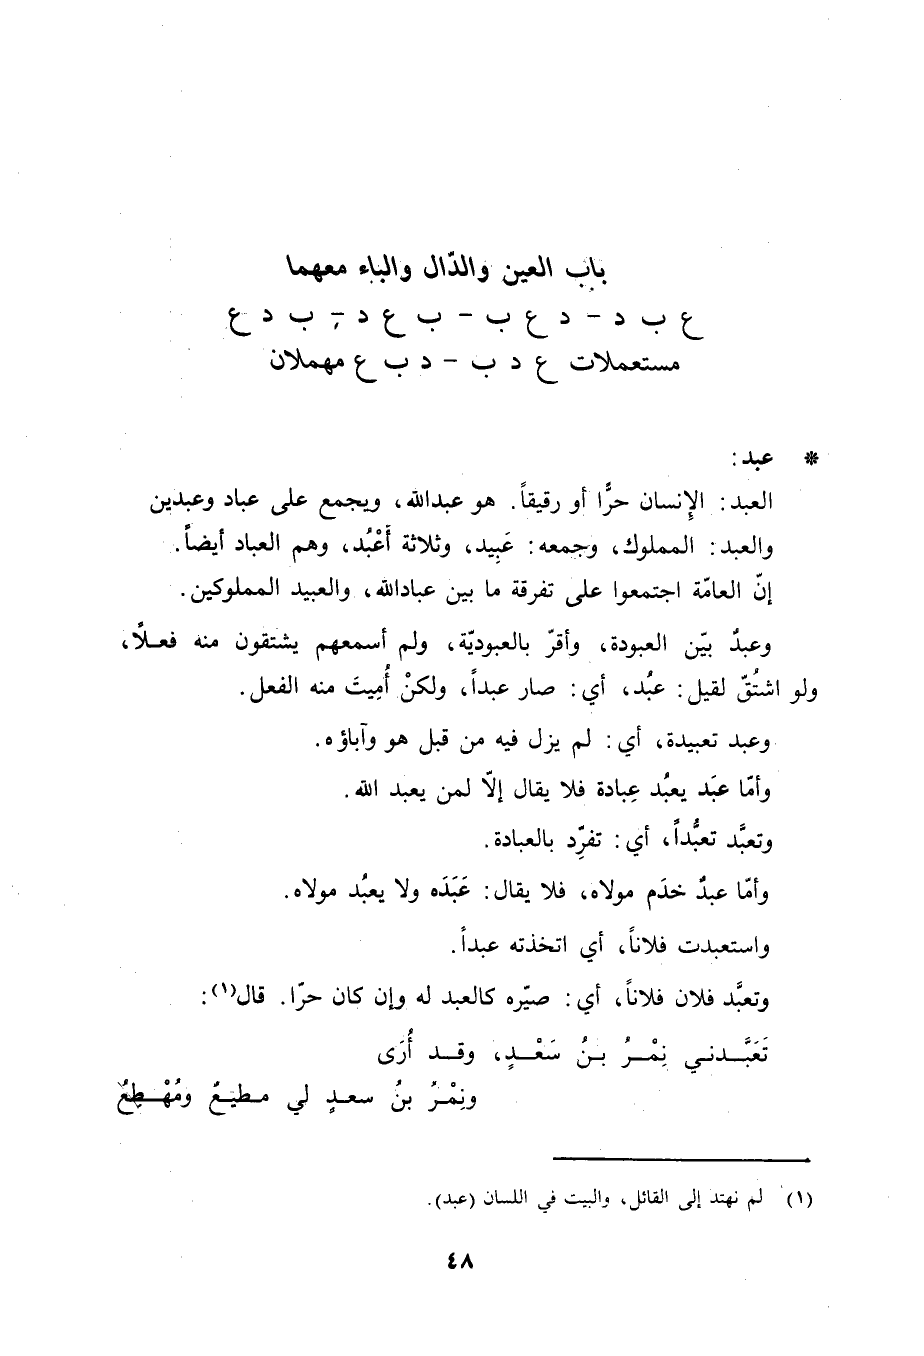 باب العين والدّال والباء معهما
ع ب د - د ع ب - ب ع د - ب د ع
مستعملات ع د ب - د ب ع مهملان
* عبد:
العبد: الإنسان حرًّا أو رقيقاً. هو عبدالله، ويجمع على عباد وعبدين
والعبد: المملوك، وجمعه: عَبِيد، وثلاثة أَعْبُد، وهم العباد أيضاً.
إنّ العامّة اجتمعوا على تفرقة ما بين عبادالله، والعبيد المملوكين.
وعبدٌ بيّن العبودة، وأقرّ بالعبوديّة، ولم أسمعهم يشتقون منه فعلاً،
ولو اشتُقّ لقيل: عبُد، أي: صار عبداً، ولكنْ أُمِيتَ منه الفعل.
وعبد تعبيدة، أي: لم يزل فيه من قبل هو وآباؤه.
وأمّا عبَد يعبُد عِبادة فلا يقال إلّا لمن يعبد الله.
وتعبَّد تعبُّداً، أي: تفرّد بالعبادة.
وأمّا عبدٌ خدَم مولاه، فلا يقال: عَبَدَه ولا يعبُد مولاه.
واستعبدت فلاناً، أي اتخذته عبداً.
وتعبَّد فلان فلاناً، أي: صيّره كالعبد له وإن كان حرّا. قال(١):
تَعَبَّدني نِمْرُ بنُ سَعْدٍ، وقد أُرَى
ونِمْرُ بنُ سعدٍ لي مطيعٌ ومُهْطِعٌ
(١) لم نهتد إلى القائل، والبيت في اللسان (عبد).
٤٨